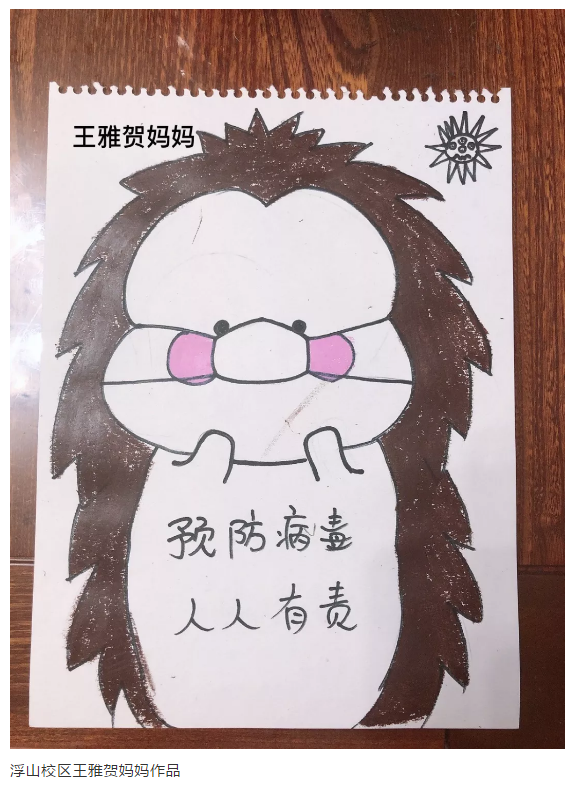 王雅贺妈妈
预防病毒
人人有责
浮山校区王雅贺妈妈作品